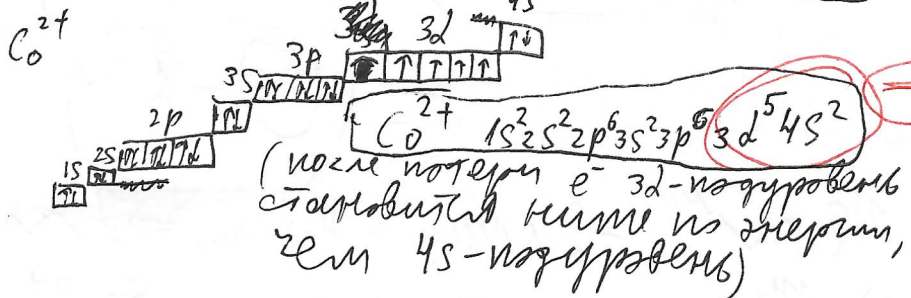 Co²⁺
1s 2s 2p 3s 3p 3d 4s
Co²⁺ 1s² 2s² 2p⁶ 3s² 3p⁶ 3d⁵ 4s²
(после потери e⁻ 3d-подуровень
становится ниже по энергии,
чем 4s-подуровень)